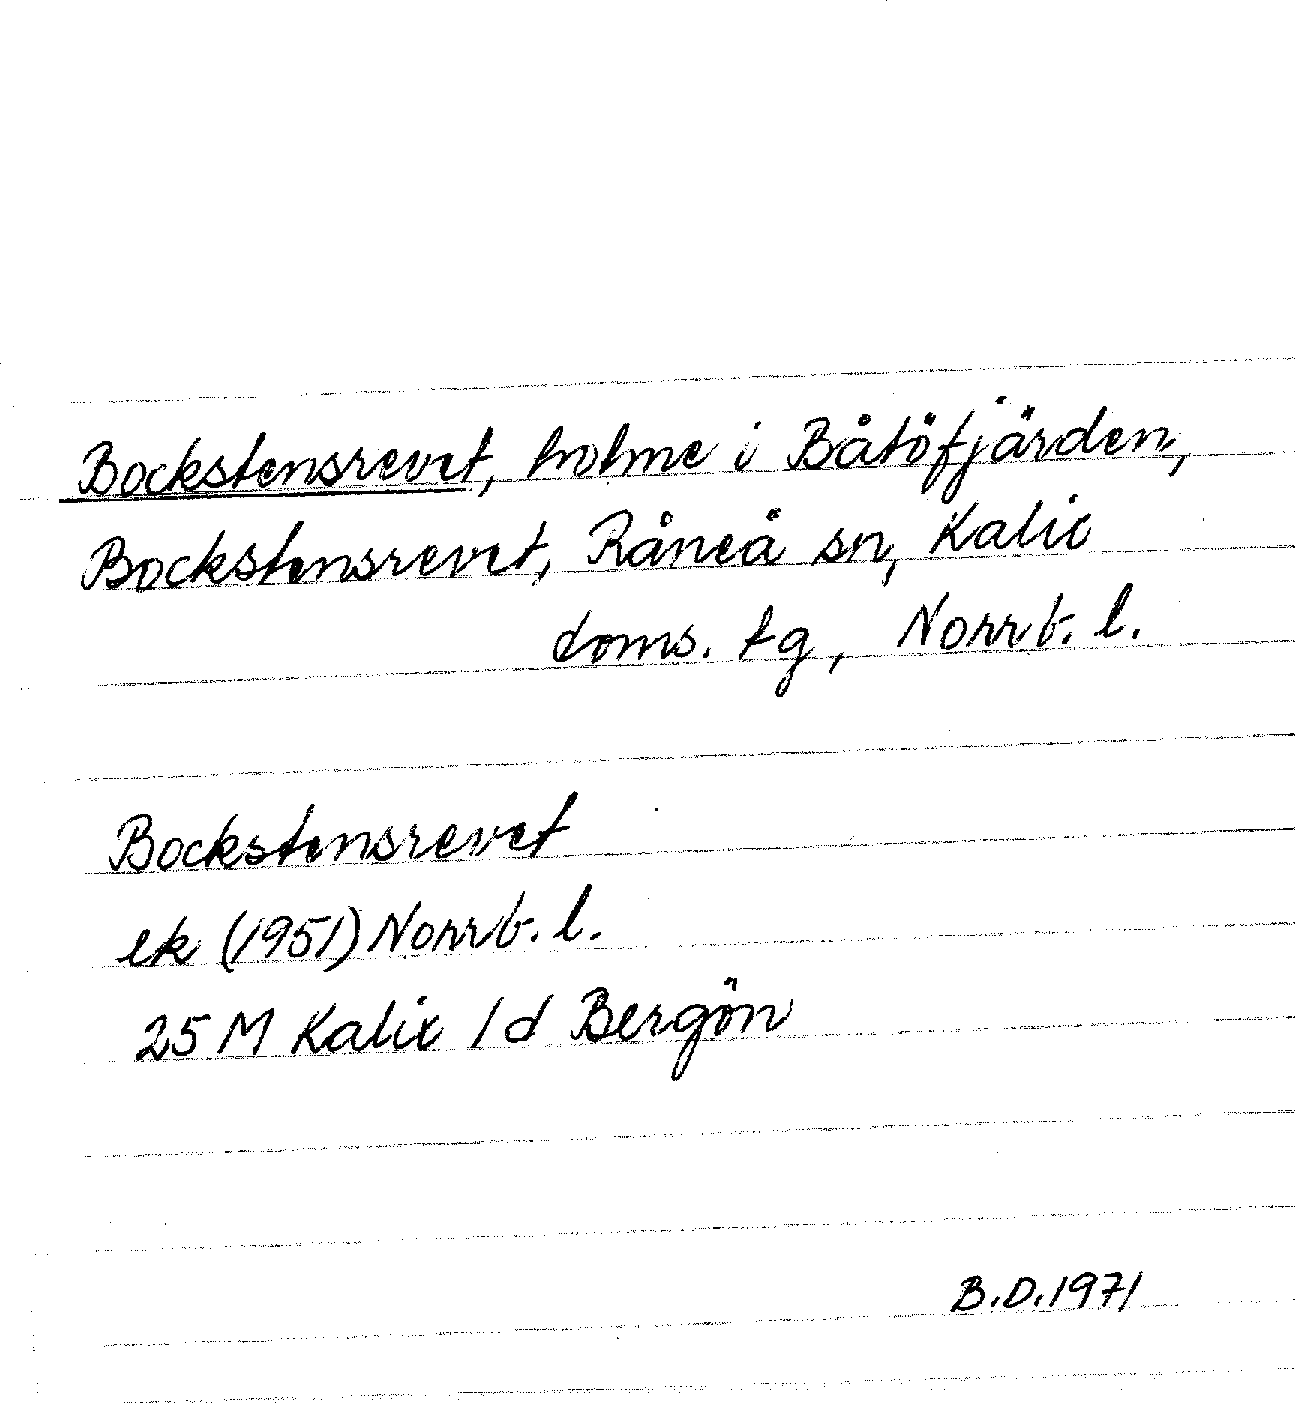 Bockstensrevet, holme i Båtöfjärden,
Bockstensrevet, Råneå sn, Kalix
doms. tg, Norrb. l.
Bockstensrevet
ek (1951) Norrb. l.
25 M Kalix / d Bergön
B.D. 1971